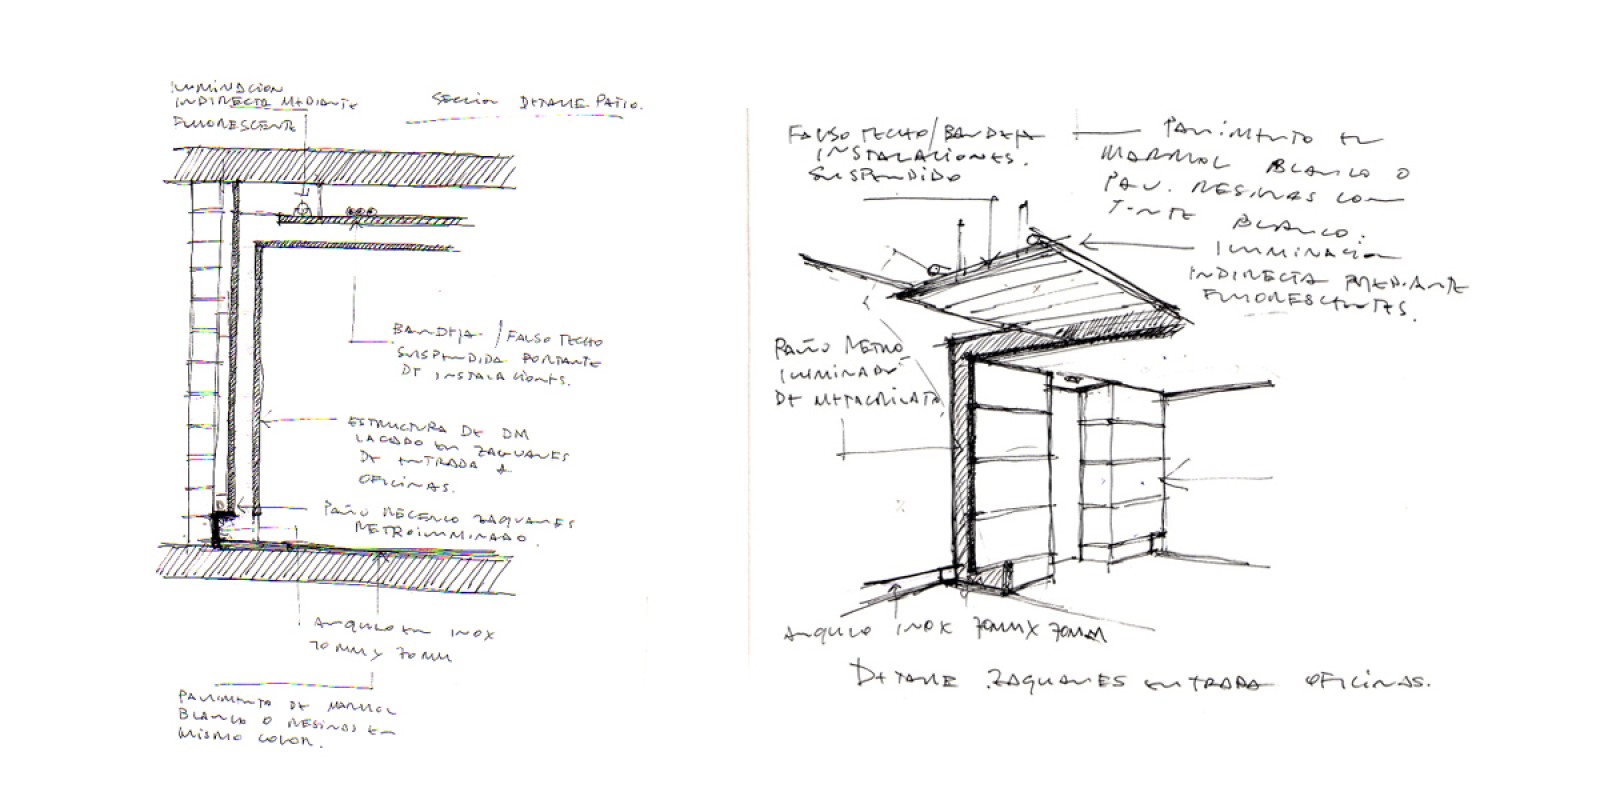 ILUMINACION
INDIRECTA MEDIANTE
FLUORESCENTE
SECCION DETALLE PATIO.
BANDEJA / FALSO TECHO
SUSPENDIDA PORTANTE
DE INSTALACIONES.
ESTRUCTURA DE DM
LACADO EN ZAGUANES
DE ENTRADA A
OFICINAS.
PAÑO RECERCO ZAGUANES
RETROILUMINADO.
ANGULO EN INOX
70 MM x 70 MM
PAVIMENTO DE MARMOL
BLANCO O RESINAS EN
MISMO COLOR.
FALSO TECHO/BANDEJA
INSTALACIONES.
SUSPENDIDO
PAVIMENTO EN
MARMOL BLANCO O
PAV. RESINAS CON
TINTE BLANCO.
ILUMINACION
INDIRECTA MEDIANTE
FLUORESCENTES.
PAÑO RETRO
ILUMINADO
DE METACRILATO
ANGULO INOX 70MM X 70MM
DETALLE ZAGUANES ENTRADA OFICINAS.